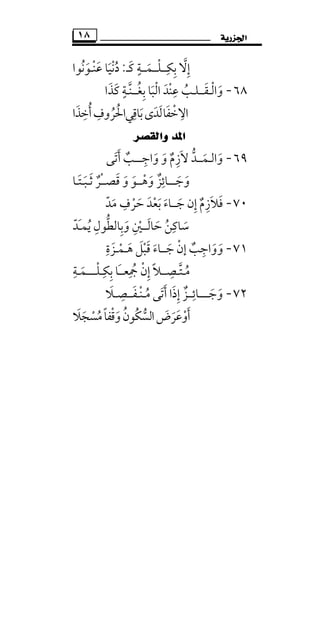 الجزرية ١٨
إِلَّا بِكِـلْـمَـةٍ كَـ: دُنْيَا عَنْـوَنُوا
٦٨- وَالْـقَـلـبُ عِنْدَ الْبَا بِغُـنَّـةٍ كَذَا
الِاخْفَا لَدَى بَاقِي الْحُرُوفِ أُخِذَا
المد والقصر
٦٩- وَالـمَـدُّ لَازِمٌ وَ وَاجِـبٌ أَتَى
وَجَـائِـزٌ وَهْـوَ وَ قَصْـرٌ ثَـبَـتَـا
٧٠- فَلَازِمٌ إِن جَـاءَ بَعْدَ حَرْفِ مَدّ
سَاكِنُ حَالَـيْـنِ وَبِالطُّولِ يُمَـدّ
٧١- وَوَاجِبٌ إنْ جَـاءَ قَبْلَ هَـمْـزَةِ
مُـتَّـصِـلاً إِنْ جُمِعَـا بِكِـلْـمَـةِ
٧٢- وَجَـائِـزٌ إِذَا أَتَى مُـنْـفَـصِـلَا
أَوْعَرَضَ السُّكُونُ وَقْفاً مُسْجَلَا